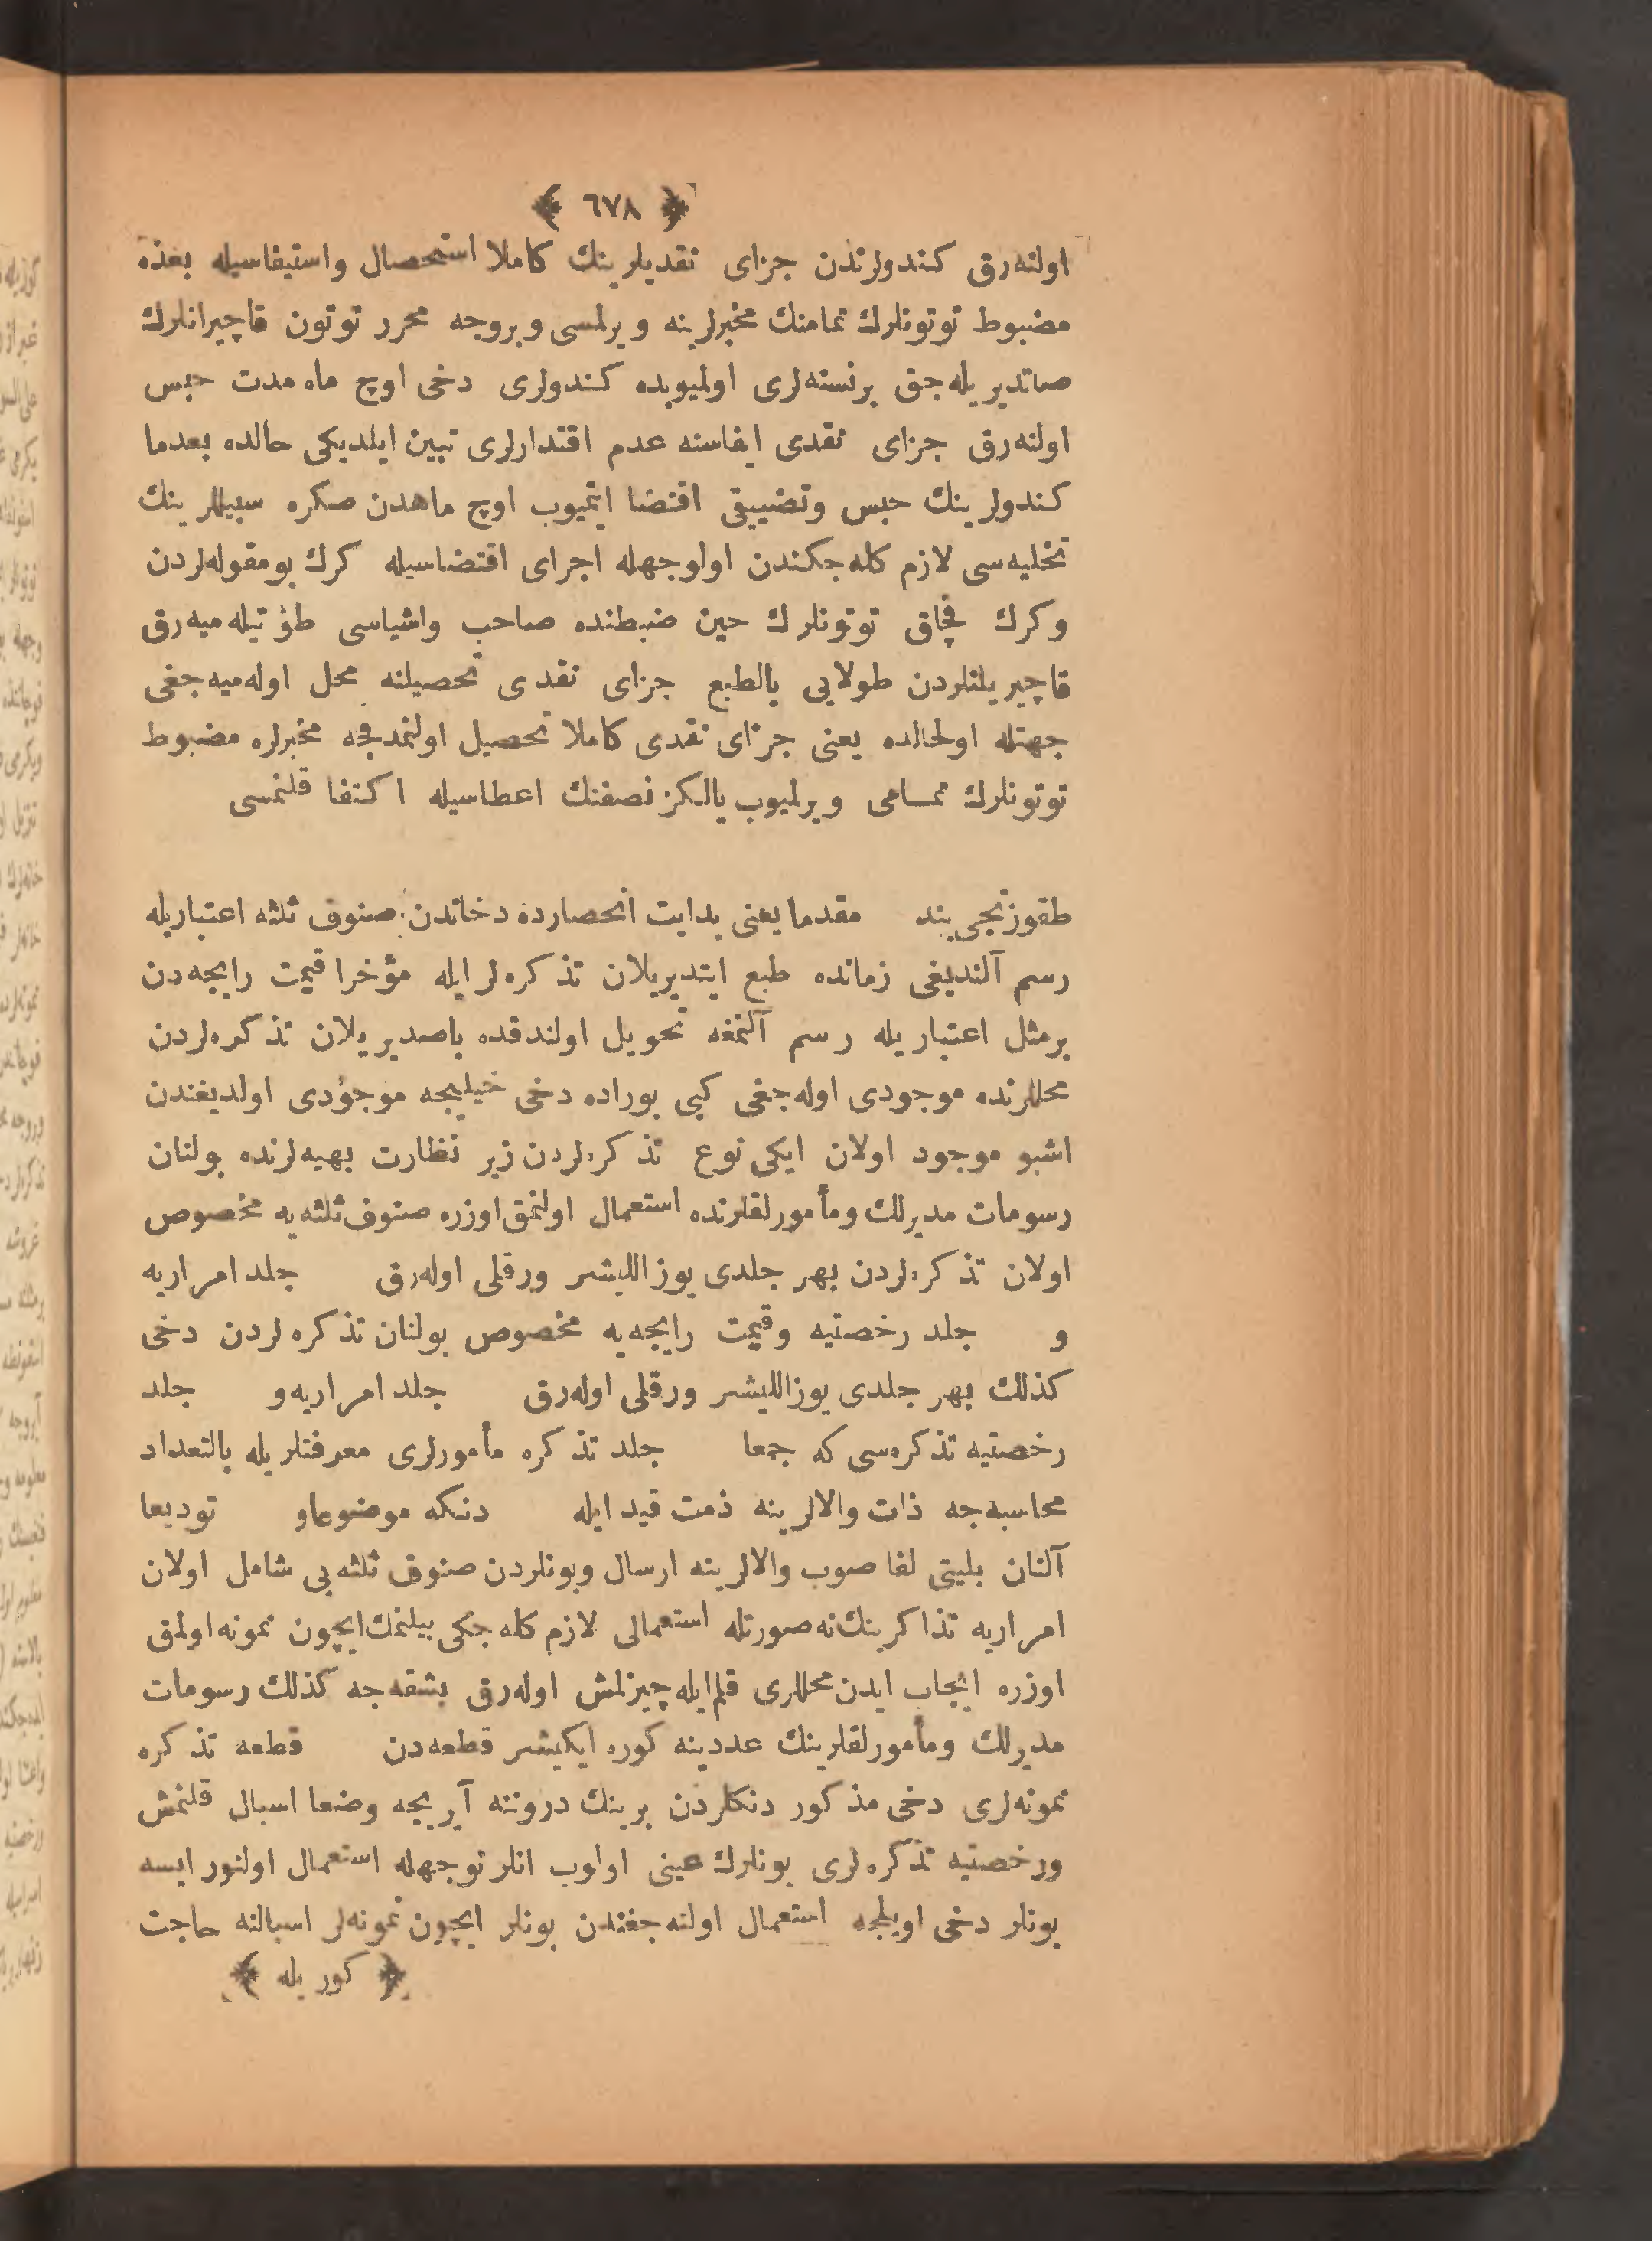 ﴿ ٦٧٨ ﴾
اولنه‌رق كندولرندن جزای نقدیلرینك كاملا استحصال واستیفاسیله بعده
مضبوط توتونلرك تمامنك مخبرلرینه ویرلمسی وبروجه محرر توتون قاچیرانلرك
صاتدیریله‌جق برنسنه‌لری اولمیوبده كندولری دخی اوچ ماه مدت حبس
اولنه‌رق جزای نقدی ایفاسنه عدم اقتدارلری تبین ایلدیكی حالده بعدما
كندولرینك حبس وتضییقی اقتضا ایتمیوب اوچ ماهدن صكره سبیللرینك
تخلیه‌سی لازم كله‌جكندن اولوجهله اجرای اقتضاسیله كرك بومقوله‌لردن
وكرك قچاق توتونلرك حین ضبطنده صاحب واشیاسی طوتیله‌میه‌رق
قاچیریلنلردن طولایی بالطبع جزای نقدی تحصیلنه محل اوله‌میه‌جغی
جهتله اولحالده یعنی جزای نقدی كاملا تحصیل اولنمدقجه مخبرلره مضبوط
توتونلرك تمامی ویرلمیوب یالكز نصفنك اعطاسیله اكتفا قلنمسی
طقوزنجی بند مقدما یعنی بدایت انحصارده دخاندن صنوف ثلثه اعتباریله
رسم آلندیغی زمانده طبع ایتدیریلان تذكره‌لر ایله مؤخرا قیمت رایجه‌دن
برمثل اعتباریله رسم آلنمغه تحویل اولندقده باصدیریلان تذكره‌لردن
محللرنده موجودی اوله‌جغی كبی بوراده دخی خیلیجه موجودی اولدیغندن
اشبو موجود اولان ایكی نوع تذكره‌لردن زیر نظارت بهیه‌لرنده بولنان
رسومات مدیرلك ومأمورلقلرنده استعمال اولنمق اوزره صنوف ثلثه‌یه مخصوص
اولان تذكره‌لردن بهر جلدی یوز اللیشر ورقلی اوله‌رق جلد امراریه
و جلد رخصتیه وقیمت رایجه‌یه مخصوص بولنان تذكره‌لردن دخی
كذلك بهر جلدی یوز اللیشر ورقلی اوله‌رق جلد امراریه و جلد
رخصتیه تذكره‌سی كه جمعا جلد تذكره مأمورلری معرفتلریله بالتعداد
محاسبه‌جه ذات والالرینه ذمت قید ایله دنكه موضوعا و تودیعا
آلنان بلیتی لفا صوب والالرینه ارسال وبونلردن صنوف ثلثه‌یی شامل اولان
امراریه تذاكرینك نه صورتله استعمالی لازم كله‌جكی بیلنمك ایچون نمونه اولمق
اوزره ایجاب ایدن محللری قلم ایله چیزلمش اوله‌رق بشقه‌جه كذلك رسومات
مدیرلك ومأمورلقلرینك عددینه كوره ایكیشر قطعه‌دن قطعه تذكره
نمونه‌لری دخی مذكور دنكلردن برینك دروننه آیریجه وضعا اسبال قلنمش
ورخصتیه تذكره‌لری بونلرك عینی اولوب انلر نوجهله استعمال اولنور ایسه
بونلر دخی اویلجه استعمال اولنه‌جغندن بونلر ایچون نمونه‌لر اسبالنه حاجت
﴿ كوریله ﴾